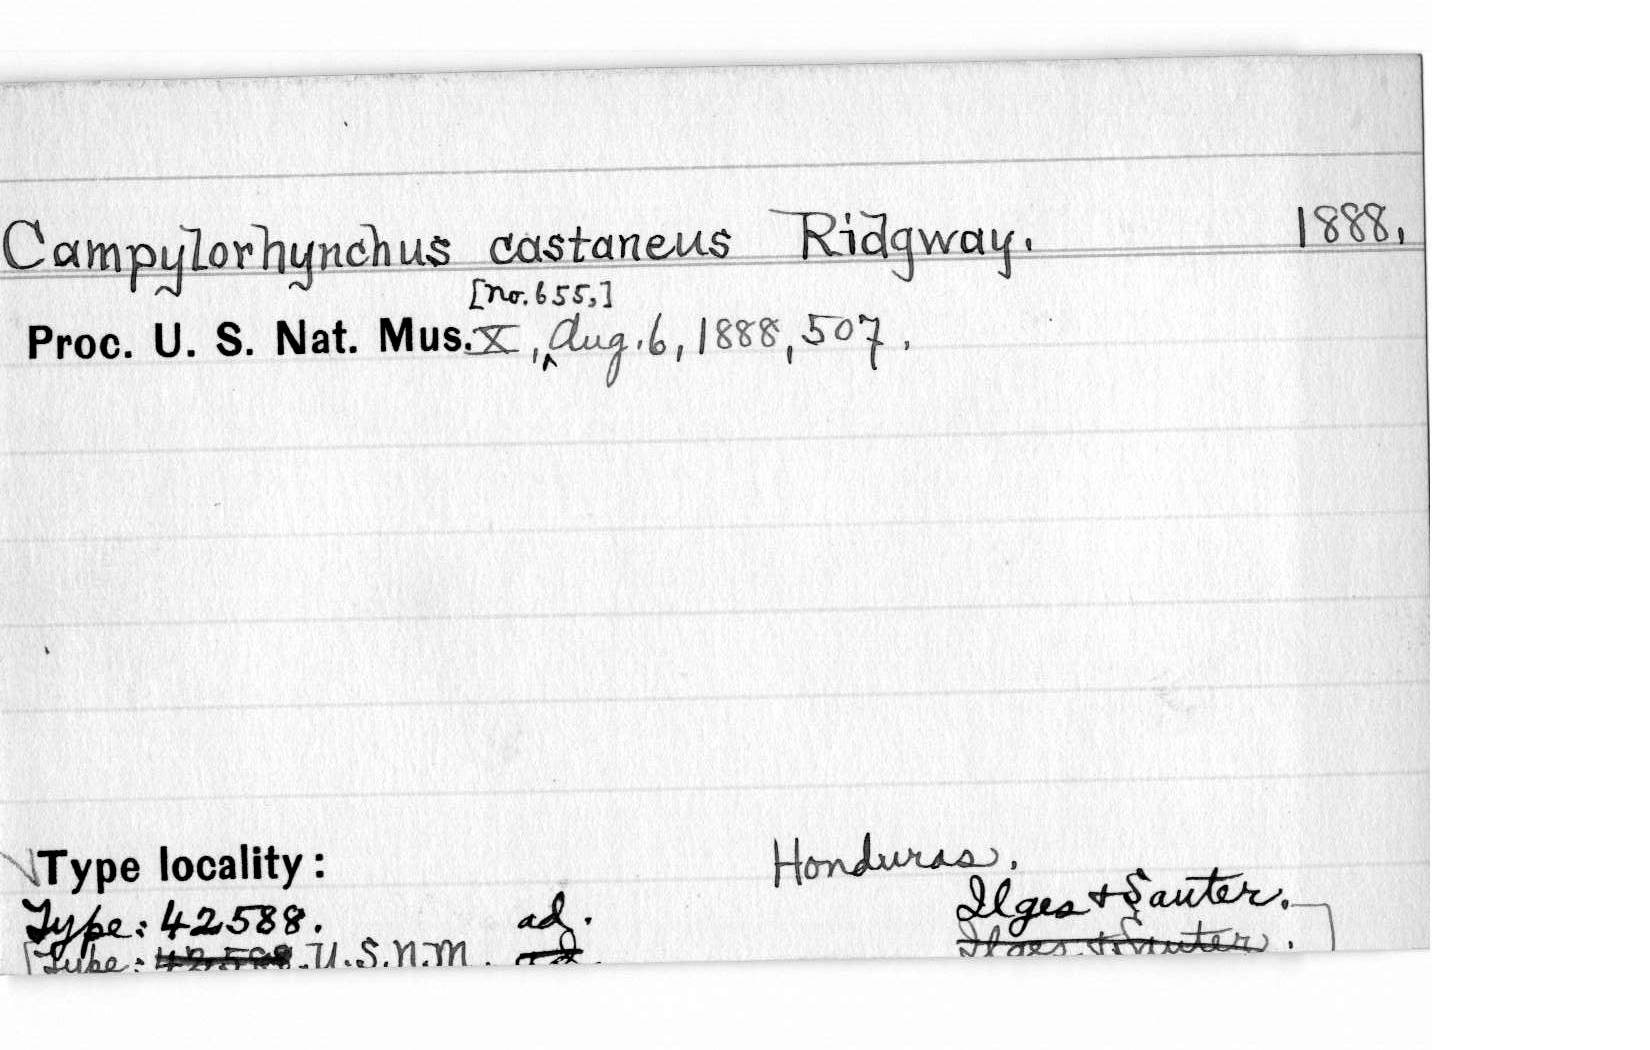 Campylorhynchus castaneus Ridgway. 1888.
[no. 655,]
Proc. U. S. Nat. Mus. X, Aug. 6, 1888, 507.
Type locality: Honduras.
Type: 42588. ad. Ilges + Sauter.
[Type: 42588. U.S.N.M. ad. Ilges + Sauter.]